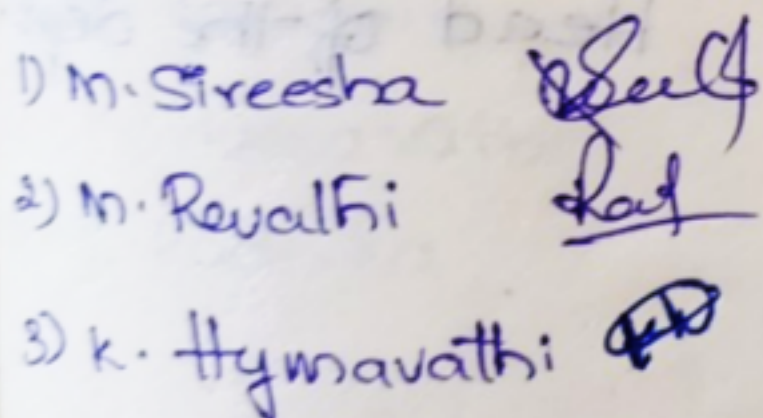 1) M. Sireesha
2) M. Revathi
3) K. Hymavathi